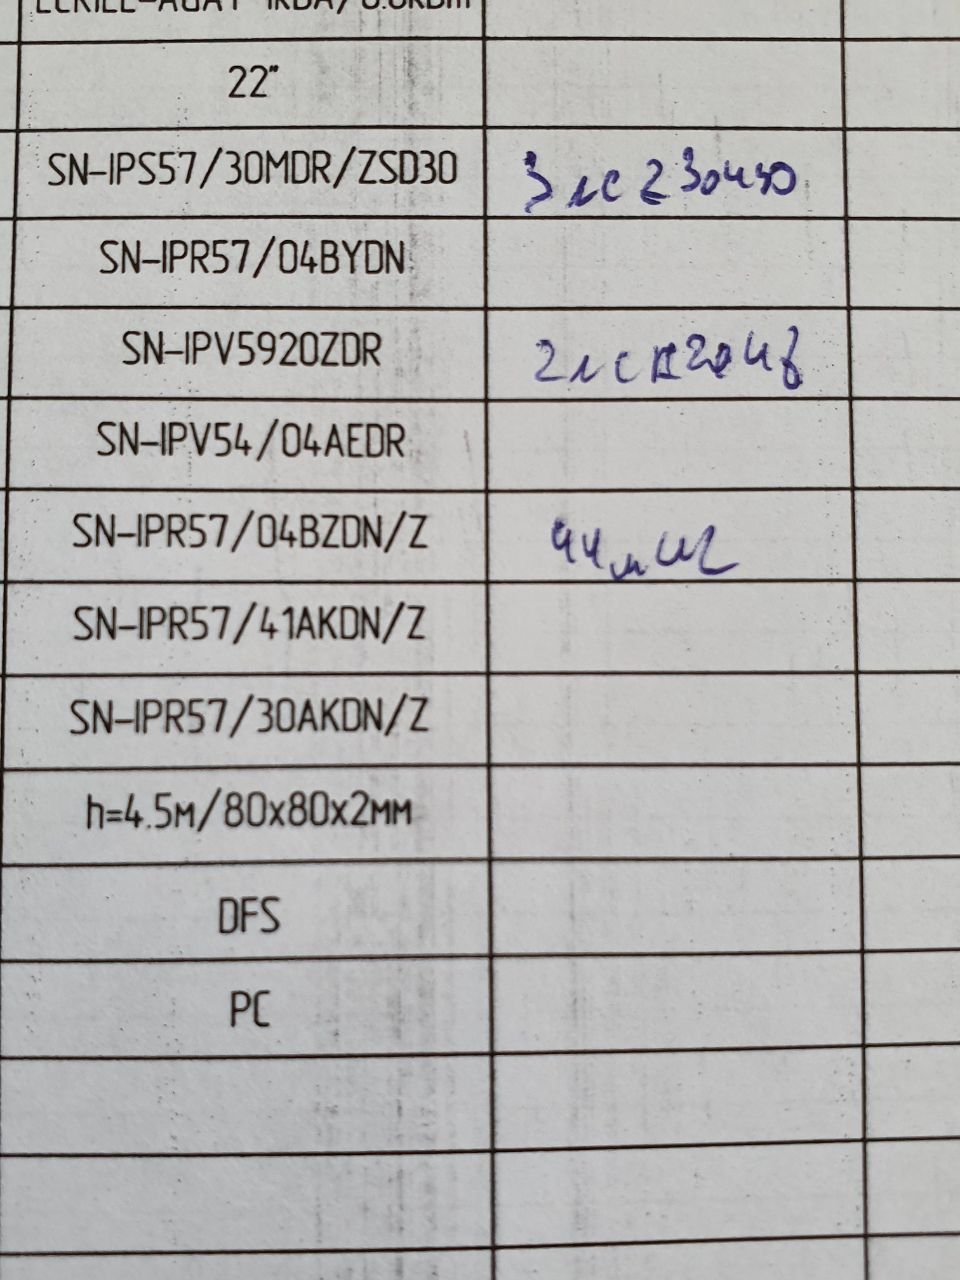 22"
SN-IPS57/30MDR/ZSD30
SN-IPR57/04BYDN
SN-IPV5920ZDR
SN-IPV54/04AEDR
SN-IPR57/04BZDN/Z
SN-IPR57/41AKDN/Z
SN-IPR57/30AKDN/Z
h=4.5м/80x80x2мм
DFS
PC